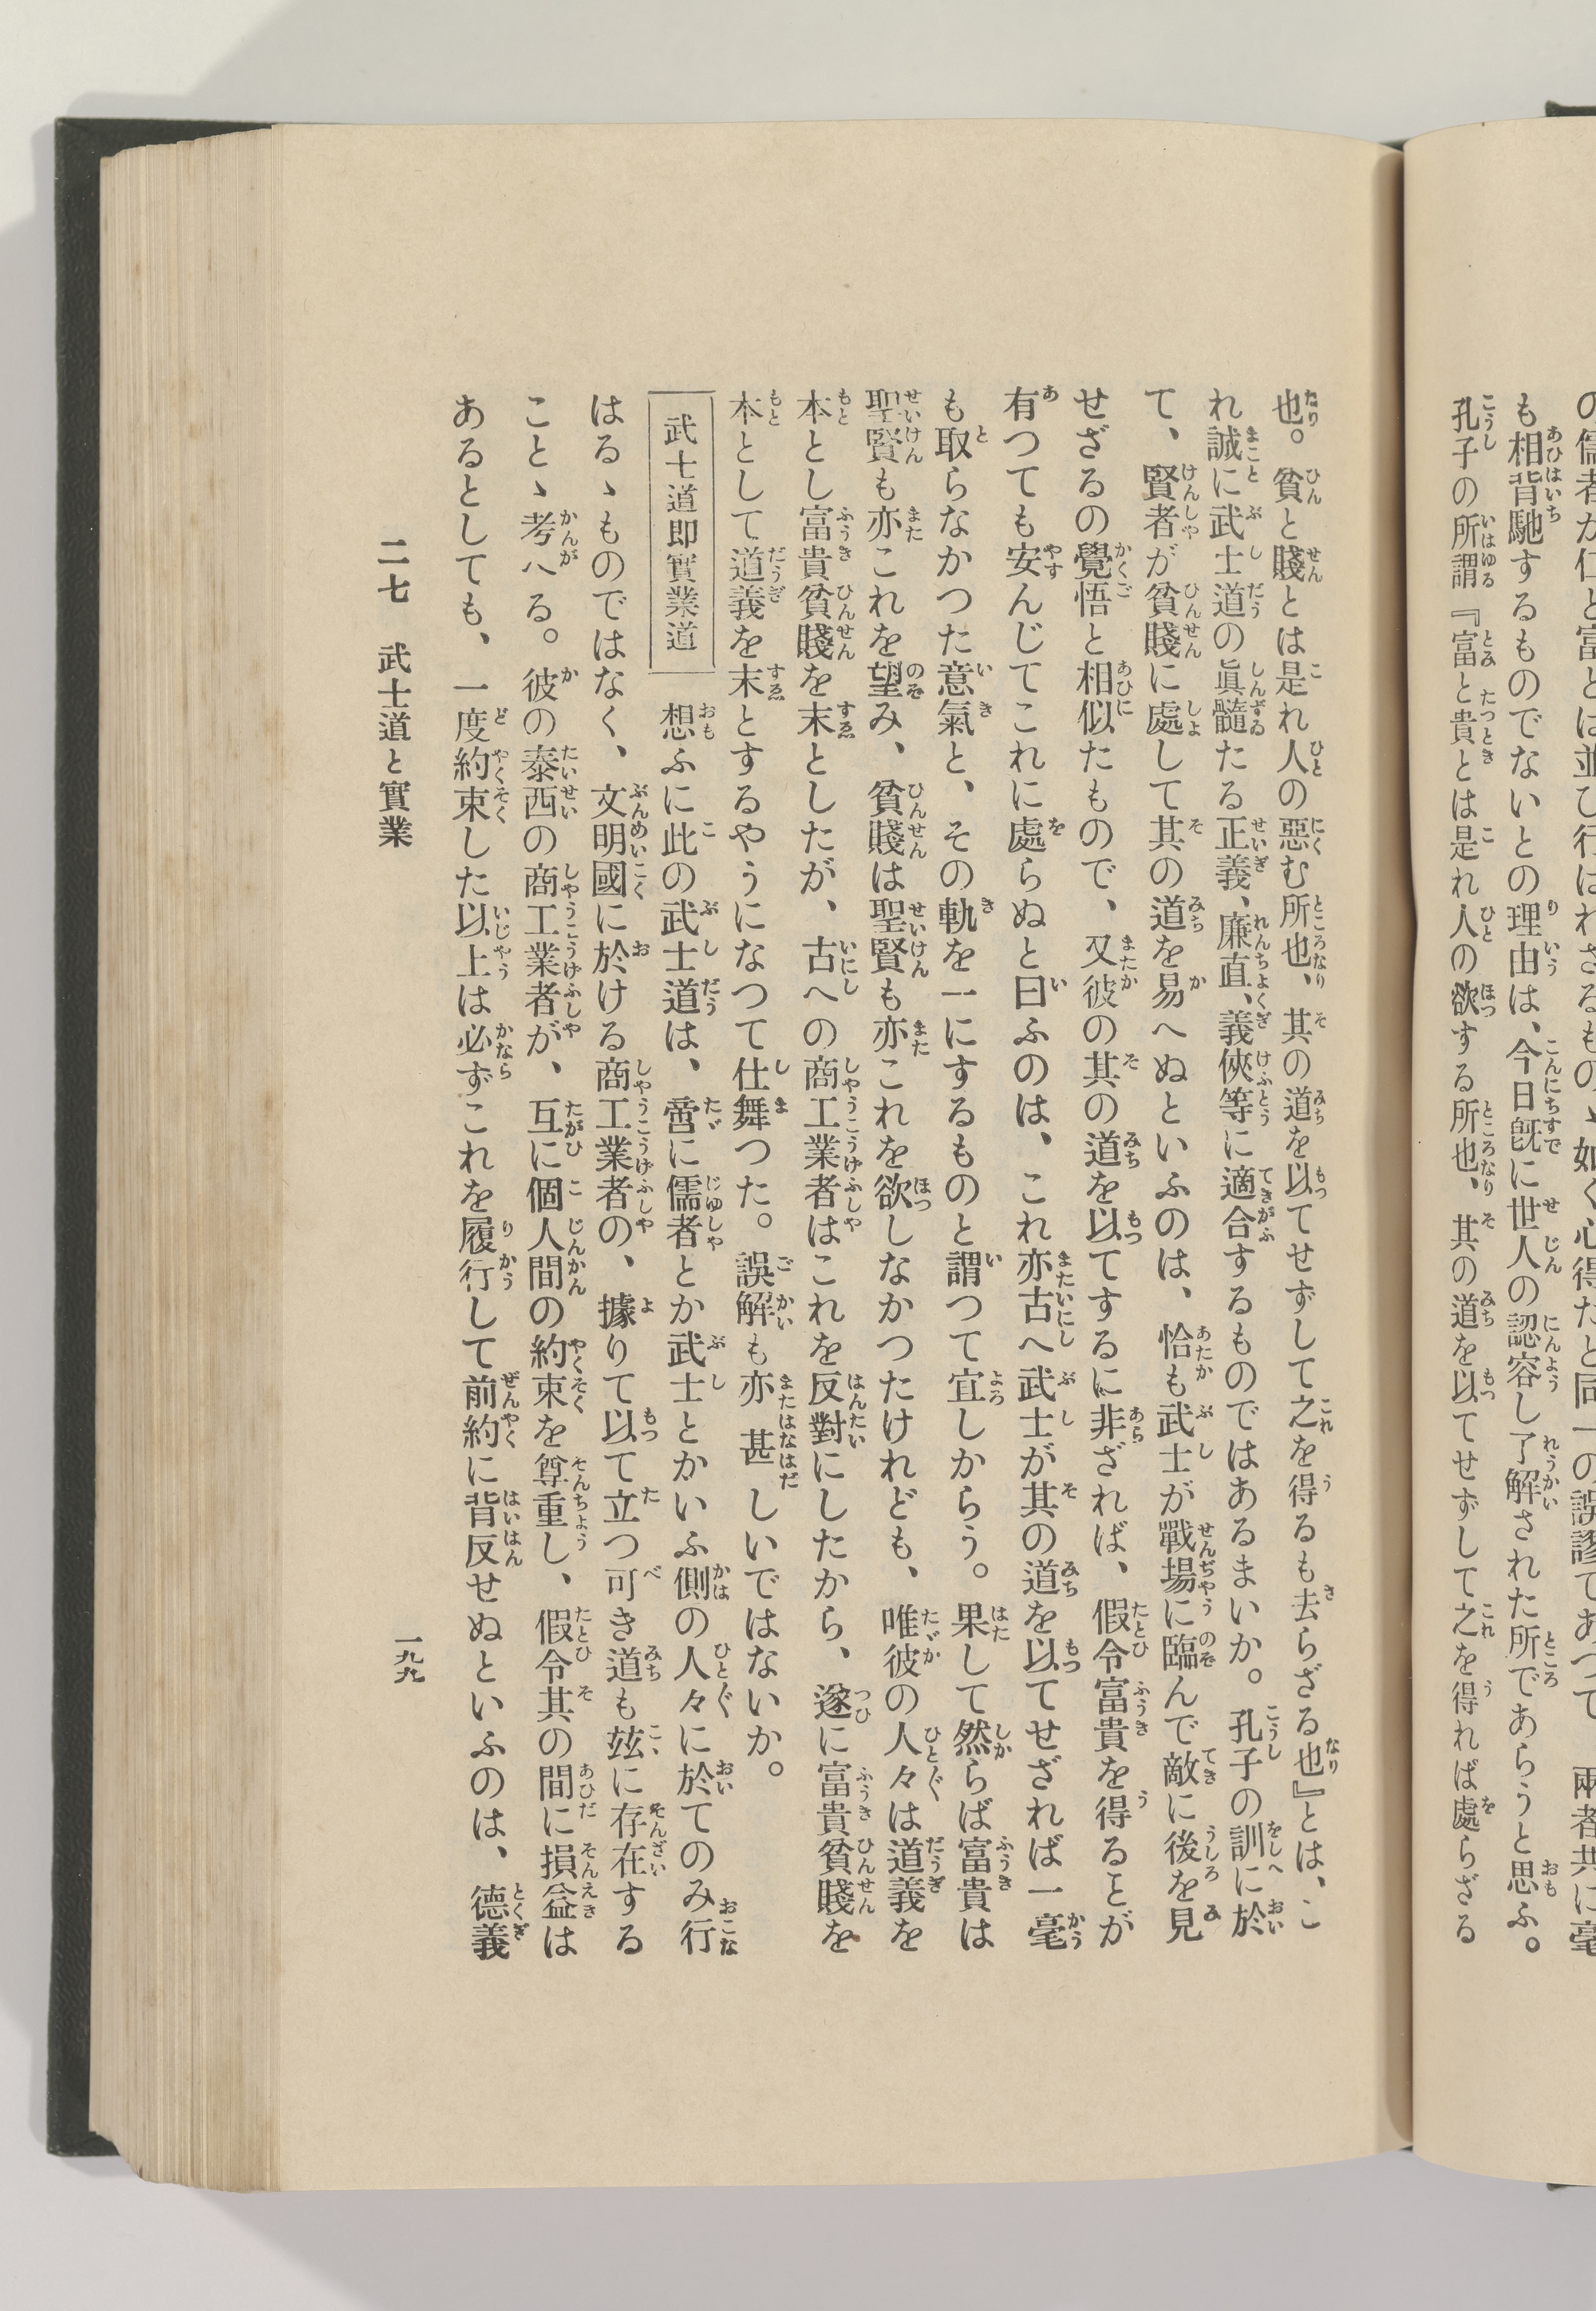 の儒者が仁と富とは並び行はれざるものゝ如く心得たと同一の誤謬であつて、兩者共に毫
も相背馳するものでないとの理由は、今日既に世人の認容し了解された所であらうと思ふ。
孔子の所謂『富と貴とは是れ人の欲する所也、其の道を以てせずして之を得れば處らざる
也。貧と賤とは是れ人の惡む所也、其の道を以てせずして之を得るも去らざる也』とは、こ
れ誠に武士道の眞髓たる正義、廉直、義俠等に適合するものではあるまいか。孔子の訓に於
て、賢者が貧賤に處して其の道を易へぬといふのは、恰も武士が戰場に臨んで敵に後を見
せざるの覺悟と相似たもので、又彼の其の道を以てするに非ざれば、假令富貴を得ることが
有つても安んじてこれに處らぬと曰ふのは、これ亦古へ武士が其の道を以てせざれば一毫
も取らなかつた意氣と、その軌を一にするものと謂つて宜しからう。果して然らば富貴は
聖賢も亦これを望み、貧賤は聖賢も亦これを欲しなかつたけれども、唯彼の人々は道義を
本とし富貴貧賤を末としたが、古への商工業者はこれを反對にしたから、遂に富貴貧賤を
本として道義を末とするやうになつて仕舞つた。誤解も亦甚しいではないか。
武士道即實業道
想ふに此の武士道は、啻に儒者とか武士とかいふ側の人々に於てのみ行
はるゝものではなく、文明國に於ける商工業者の、據りて以て立つ可き道も玆に存在する
ことゝ考へる。彼の泰西の商工業者が、互に個人間の約束を尊重し、假令其の間に損益は
あるとしても、一度約束した以上は必ずこれを履行して前約に背反せぬといふのは、德義
二七　武士道と實業
一九九